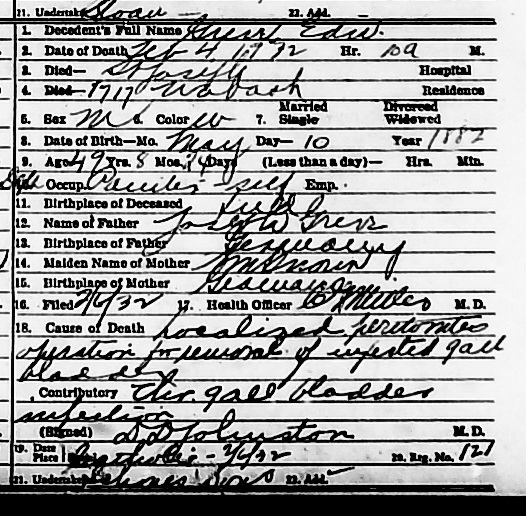 21. Undertaker Sloan — 22. Add.
1. Decedent's Full Name Edw.
2. Date of Death Feb 4 1932 Hr. 10a M.
3. Died— St Joseph Hospital
4. Died— 1717 Wabash Residence
5. Sex M Color W 7. Married Single Divorced Widowed
8. Date of Birth—Mo. May Day— 10 Year 1882
9. Age 49 Yrs. 8 Mos. 24 Days (Less than a day)— Hrs. Min.
Occup. Painter - self Emp.
11. Birthplace of Deceased Ind
12. Name of Father Joseph
13. Birthplace of Father Germany
14. Maiden Name of Mother
15. Birthplace of Mother Germany
16. Filed 2/6/32 17. Health Officer M. D.
18. Cause of Death Localized peritonitis
operation for removal of infected gall
bladder
Contributory Chr. gall bladder
infection
(Signed) D D Johnston M. D.
19. Date Place 2/6/32 20. Reg. No. 121
21. Undertaker Sons 22. Add.